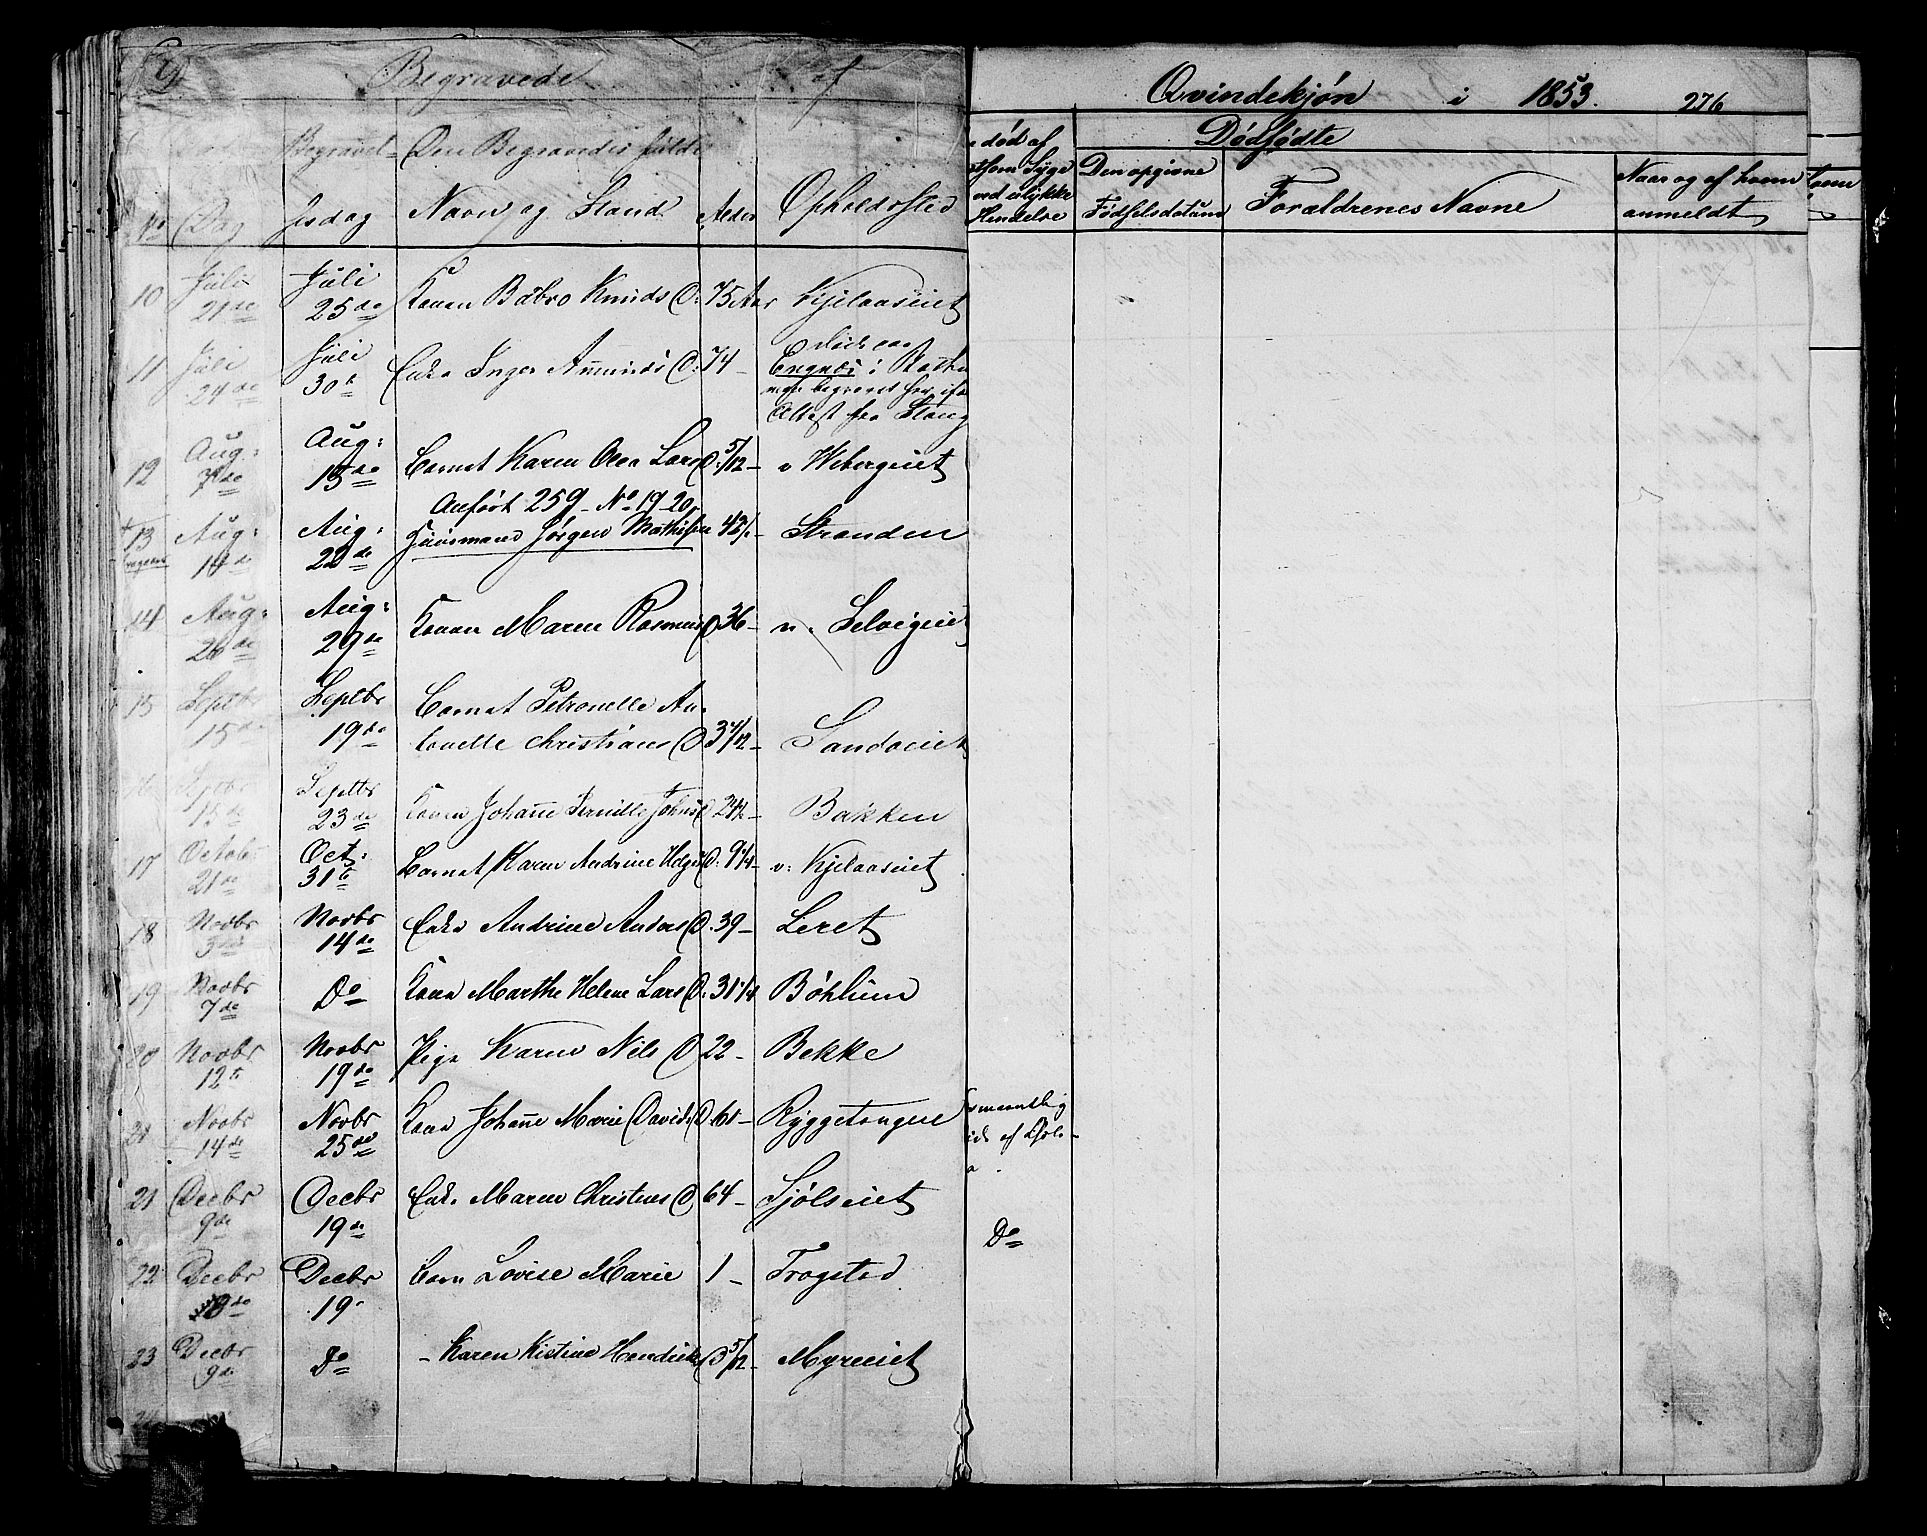 Begravede af
Qvindekjøn i 1853. 276
Begravel- Den Begravedes fulde
No Dag sesdag Navn og Stand. Alder Opholdssted
død af
Syge
ved ulykke
Hendelse
Dødfødte
Den opgivne
Fødselsdatum
Forældrenes Navne
Naar og af hvem
anmeldt
10 Juli 21de Juli 25de Konen Babro Knuds D. 75 Aar Kjelaaseiet
11 Juli 24de Juli 30te Enke Inger Amunds D. 74 -
Engnæs i
begravet her
Attest fra Stang
12 Aug: 7de Aug: 15de Barnet Karen Olea Lars D. 5/12 - v Webergeiet
Anført 259 - No 19-20
13 Aug: 19de Aug: 22de Huusmand Jørgen Mathisen 42 1/2 - Stranden
14 Aug: 26de Aug: 29de Konen Maren Rasmus D. 36 - n. Selvigeiet
15 Septbr 15de Septbr 19de Barnet Petronelle An-
Christians D 3 - Sandaeiet
Septbr 15de Septbr 23de Konen Johañe Pernille Johns D. - Bakken
17 Octob: 21de Oct: 31te Barnet Karen Andrine Helges D. 9 1/4 - v: Kjelaaseiet
18 Novbr 3die Novbr 14de Enke Andrine Anders D. 39 - Leret
19 Novbr 7de Do Kone Marthe Helene Lars D. 31 1/4 Böhlum
20 Novbr 12te Novbr 19de Pige Karen Nils D 22 - Bekke
21 Novbr 14de Novbr 25de Kone Johañe Marie Davids D. 61 - Ryggetangen
21 Decbr 9de Decbr 19de Enke Maren Christens D 64 - Sjölseiet
Do
22 Decbr 8de Decbr 19 Barn Lovise Marie 1 - Trogsted
23 Decbr 9de Do - Karen Kistine Hendriks D 5/12 - Myreeiet